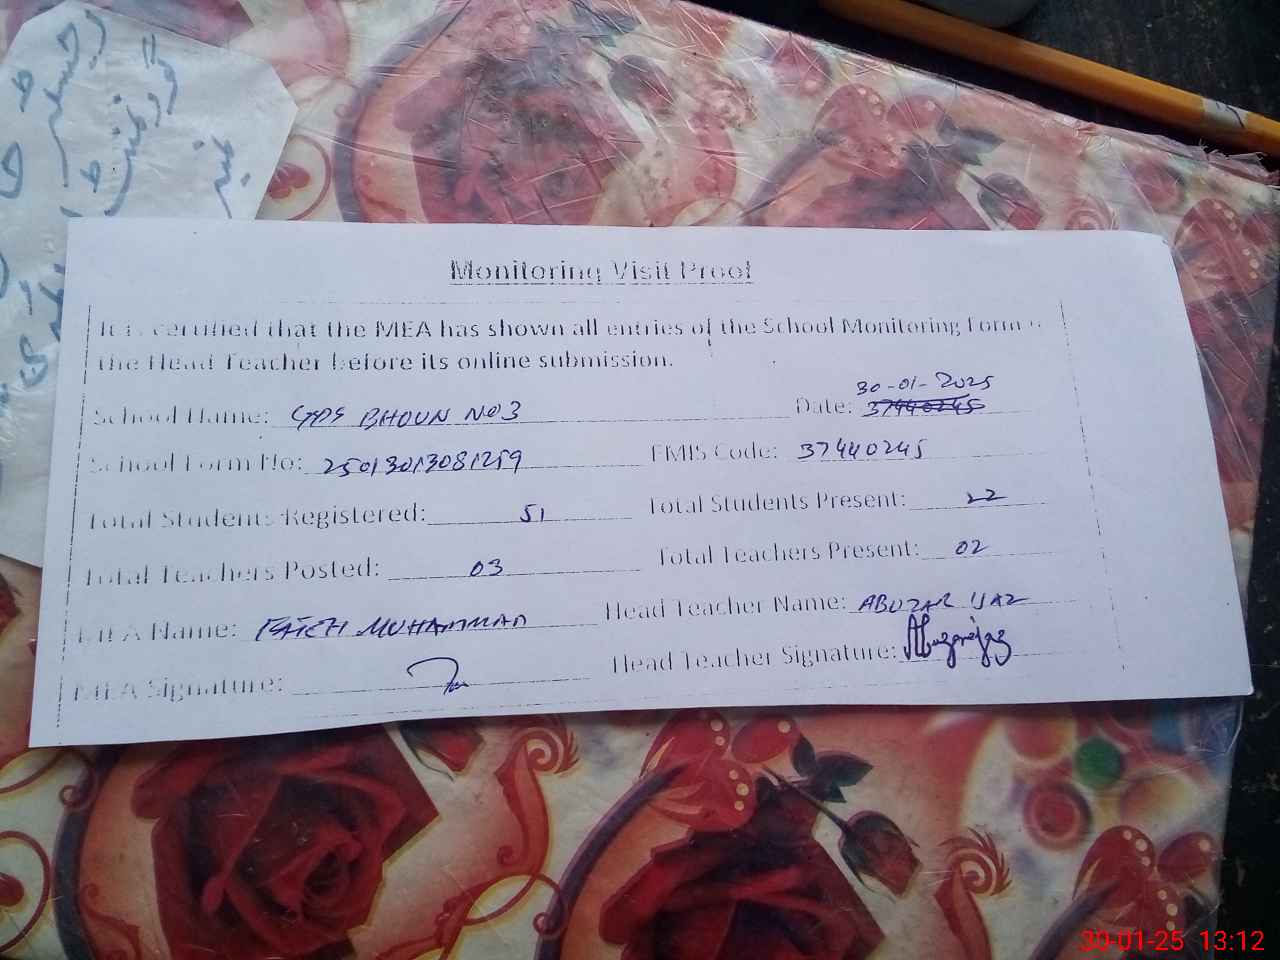 رجسٹر
گورنمنٹ
Monitoring Visit Proof
It is certified that the MEA has shown all entries of the School Monitoring Form
the Head Teacher before its online submission.
School Name: GPS BHOUN NO 3 Date: 30-01-2025
School Form No: 25013013081259 EMIS Code: 37440245
Total Students Registered: 51 Total Students Present: 22
Total Teachers Posted: 03 Total Teachers Present: 02
MEA Name: FATEH MUHAMMAD Head Teacher Name: ABUZAR IJAZ
MEA Signature: Head Teacher Signature: Abuzarijaz
30-01-25 13:12